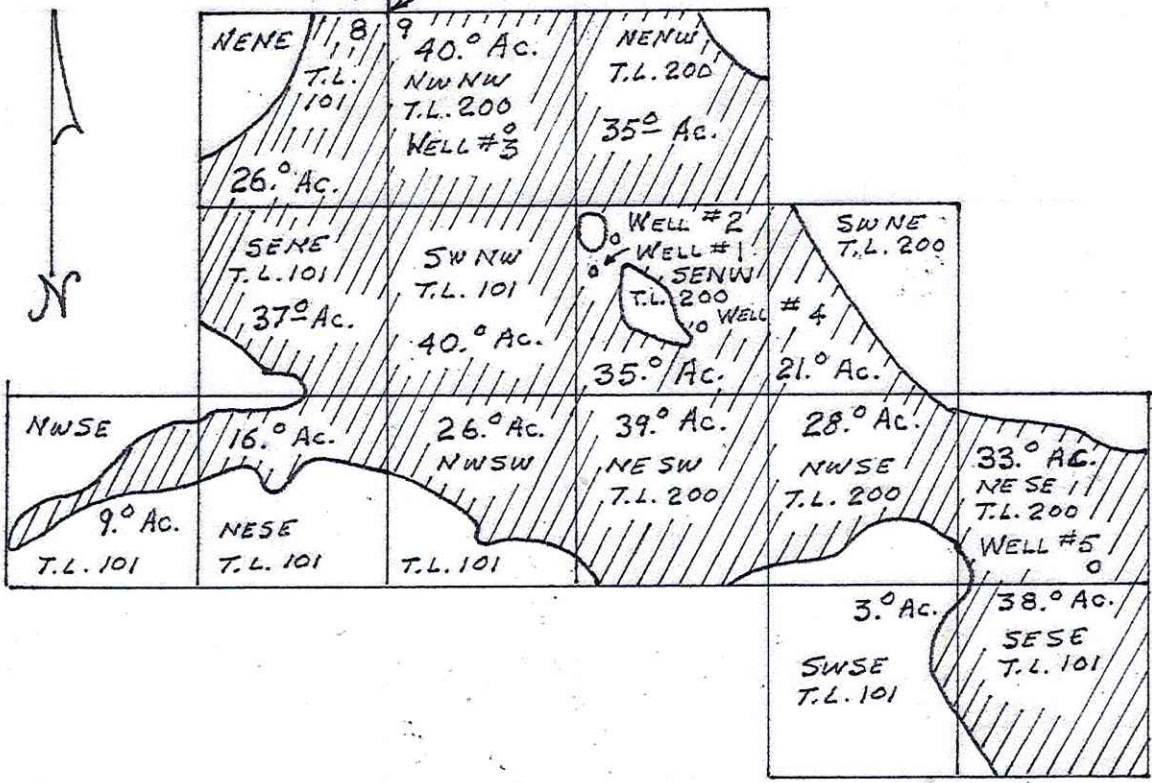 NENE
8
T.L.
101
26.0 Ac.
9
40.0 Ac.
NWNW
T.L. 200
WELL #3
NENW
T.L. 200
35.0 Ac.
N
SENE
T.L. 101
37.0 Ac.
SWNW
T.L. 101
40.0 Ac.
WELL #2
WELL #1
SENW
T.L. 200
WELL # 4
35.0 Ac.
SWNE
T.L. 200
21.0 Ac.
NWSE
9.0 Ac.
T.L. 101
16.0 Ac.
NESE
T.L. 101
26.0 Ac.
NWSW
T.L. 101
39.0 Ac.
NESW
T.L. 200
28.0 Ac.
NWSE
T.L. 200
33.0 Ac.
NESE
T.L. 200
WELL #5
3.0 Ac.
SWSE
T.L. 101
38.0 Ac.
SESE
T.L. 101